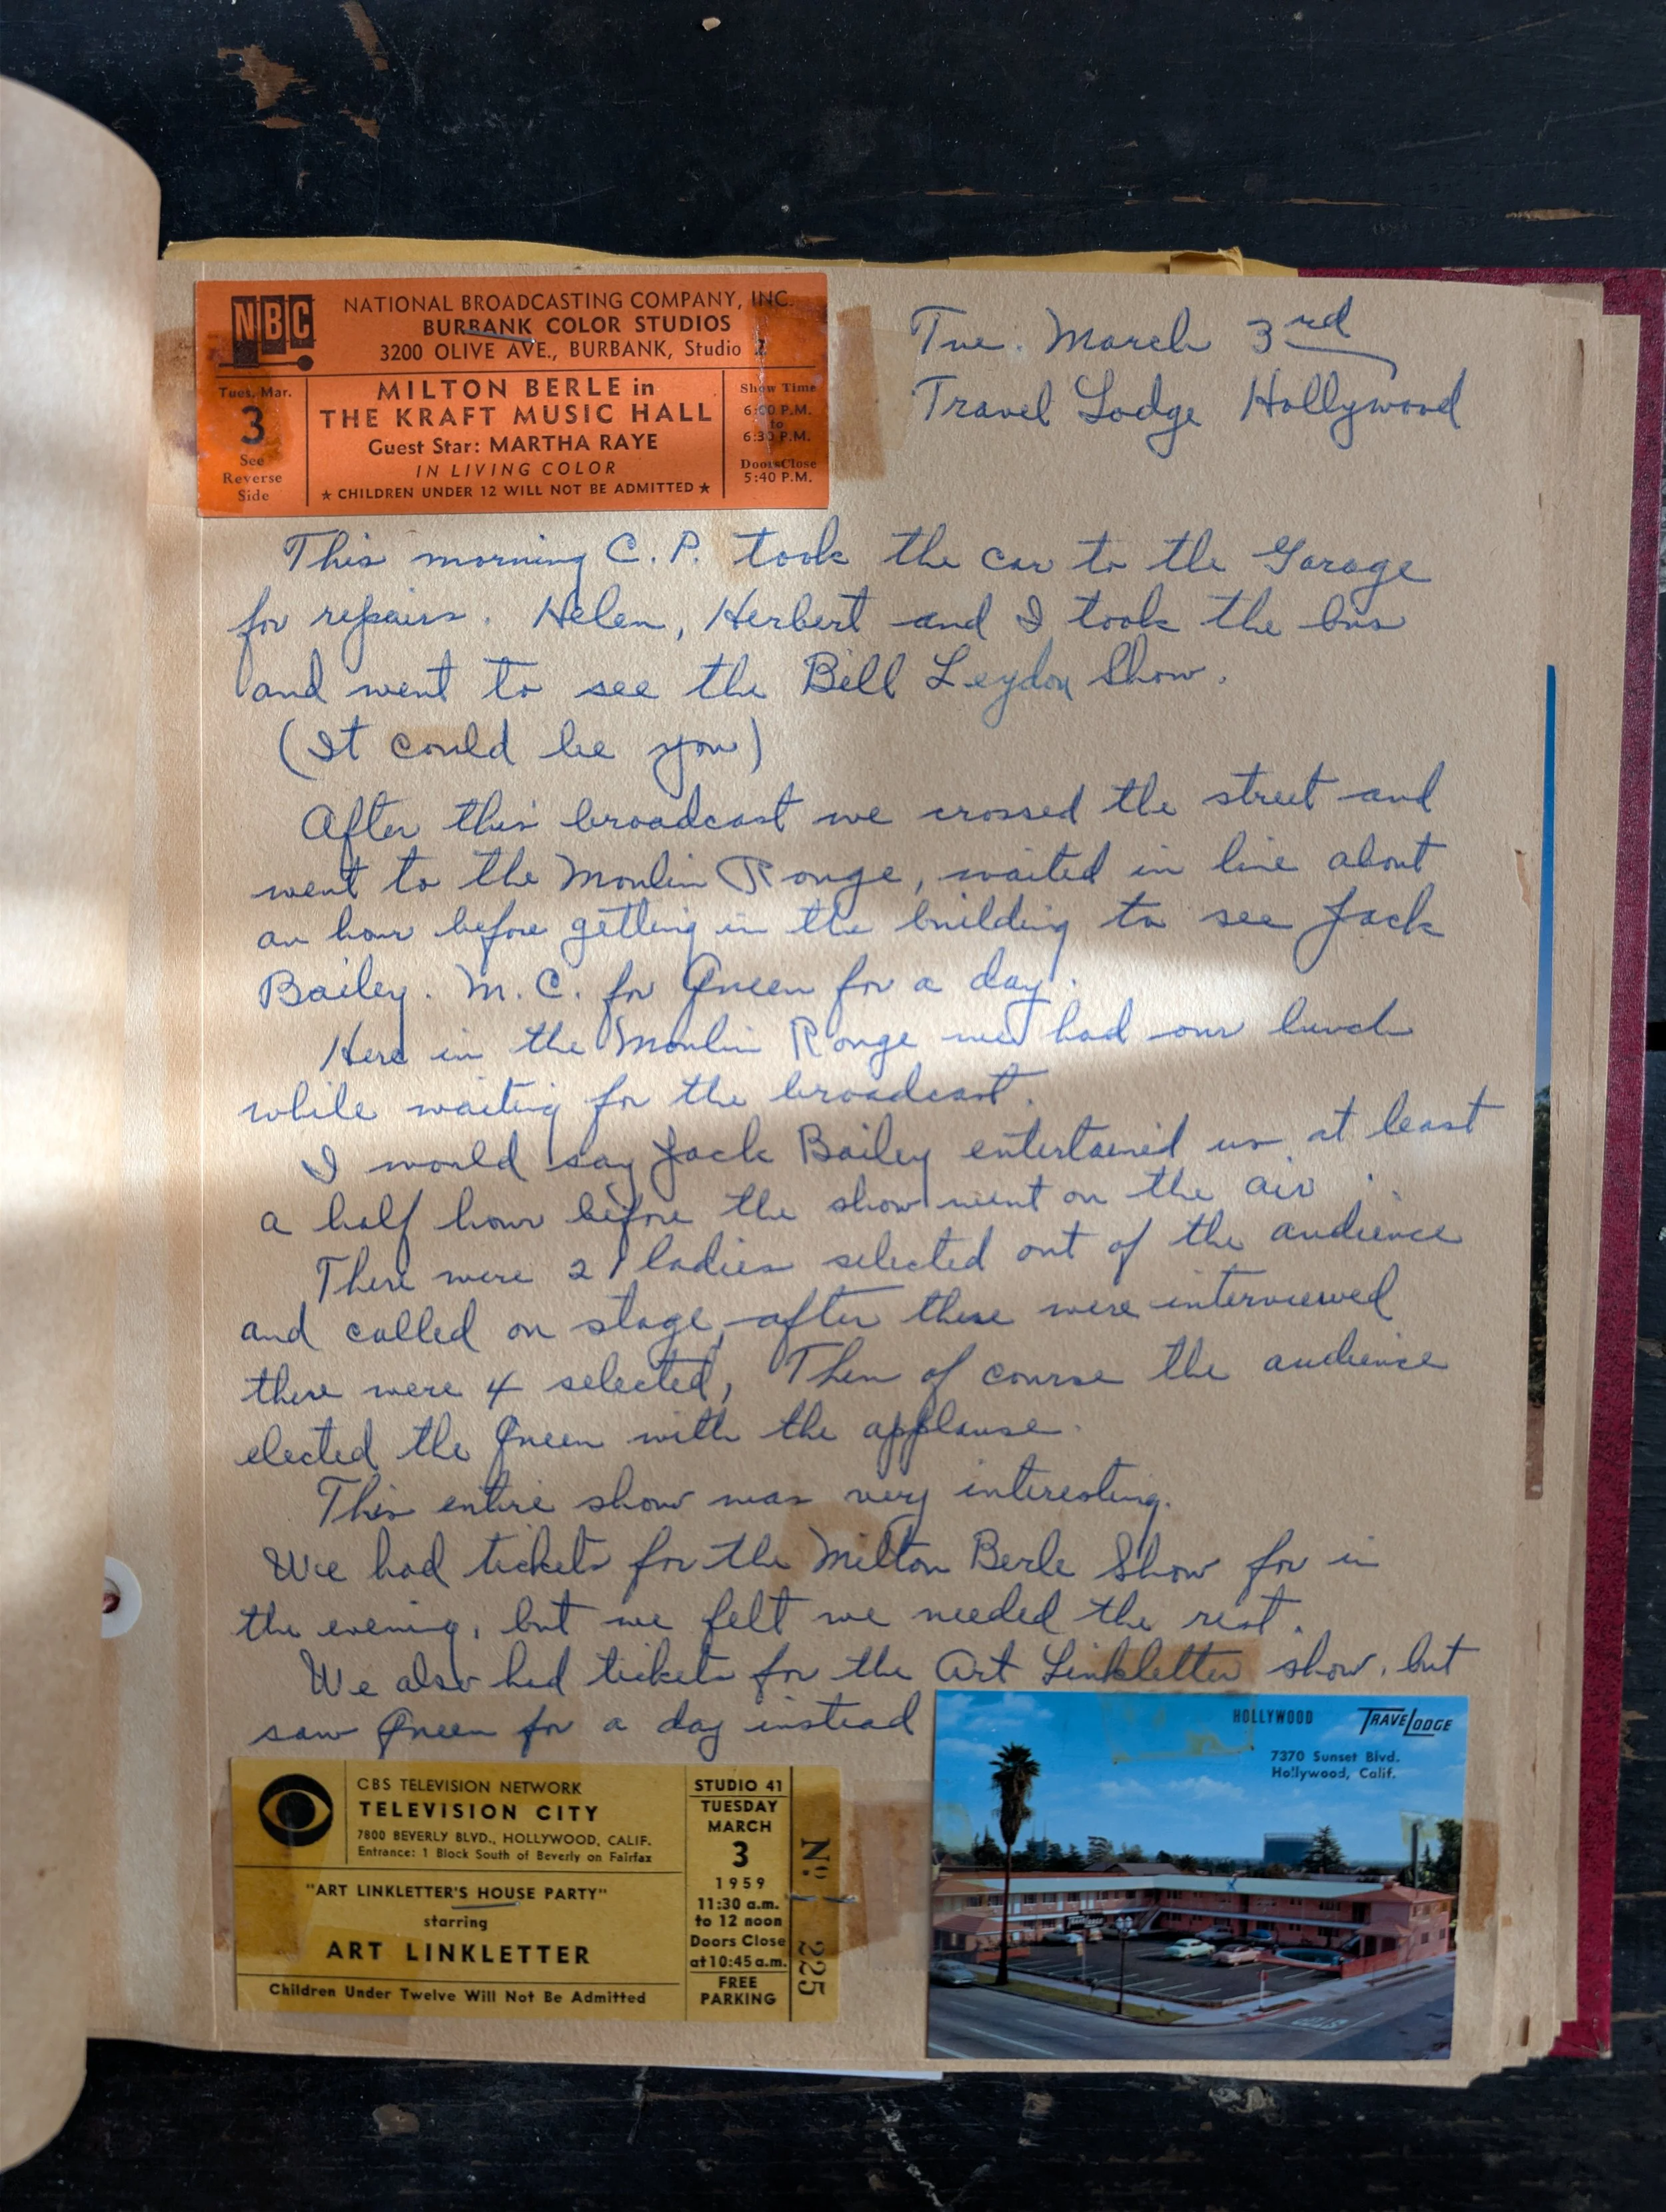 NBC
NATIONAL BROADCASTING COMPANY, INC.
BURBANK COLOR STUDIOS
3200 OLIVE AVE., BURBANK, Studio 2
Tues, Mar.
3
See
Reverse
Side
MILTON BERLE in
THE KRAFT MUSIC HALL
Guest Star: MARTHA RAYE
IN LIVING COLOR
★ CHILDREN UNDER 12 WILL NOT BE ADMITTED ★
Show Time
6:00 P.M.
to
6:30 P.M.
Doors Close
5:40 P.M.
Tue. March 3rd
Travel Lodge Hollywood
This morning C. P. took the car to the Garage
for repairs. Helen, Herbert and I took the bus
and went to see the Bill Leydon Show.
(It could be you)
After this broadcast we crossed the street and
went to the Moulin Rouge, waited in line about
an hour before getting in the building to see Jack
Bailey. M. C. for Queen for a day.
Here in the Moulin Rouge we had our lunch
while waiting for the broadcast.
I would say Jack Bailey entertained us at least
a half hour before the show went on the air.
There were 21 ladies selected out of the audience
and called on stage, after these were interviewed
there were 4 selected, Then of course the audience
elected the Queen with the applause.
This entire show was very interesting.
We had tickets for the Milton Berle Show for in
the evening, but we felt we needed the rest.
We also had tickets for the Art Linkletter show, but
saw Queen for a day instead
CBS TELEVISION NETWORK
TELEVISION CITY
7800 BEVERLY BLVD., HOLLYWOOD, CALIF.
Entrance: 1 Block South of Beverly on Fairfax
"ART LINKLETTER'S HOUSE PARTY"
starring
ART LINKLETTER
Children Under Twelve Will Not Be Admitted
STUDIO 41
TUESDAY
MARCH
3
1959
11:30 a.m.
to 12 noon
Doors Close
at 10:45 a.m.
FREE
PARKING
Nº 225
HOLLYWOOD TRAVELODGE
7370 Sunset Blvd.
Hollywood, Calif.